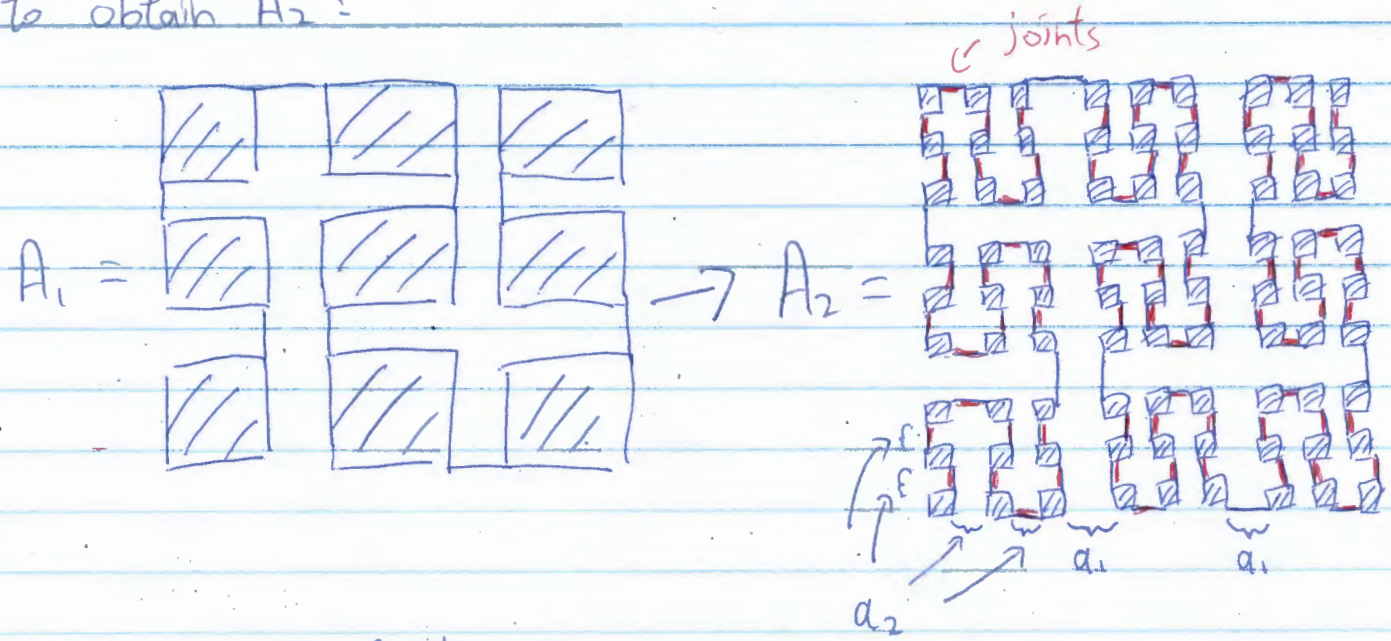 to obtain A₂:
joints
A₁ = → A₂ =
a₁ a₁
a₂